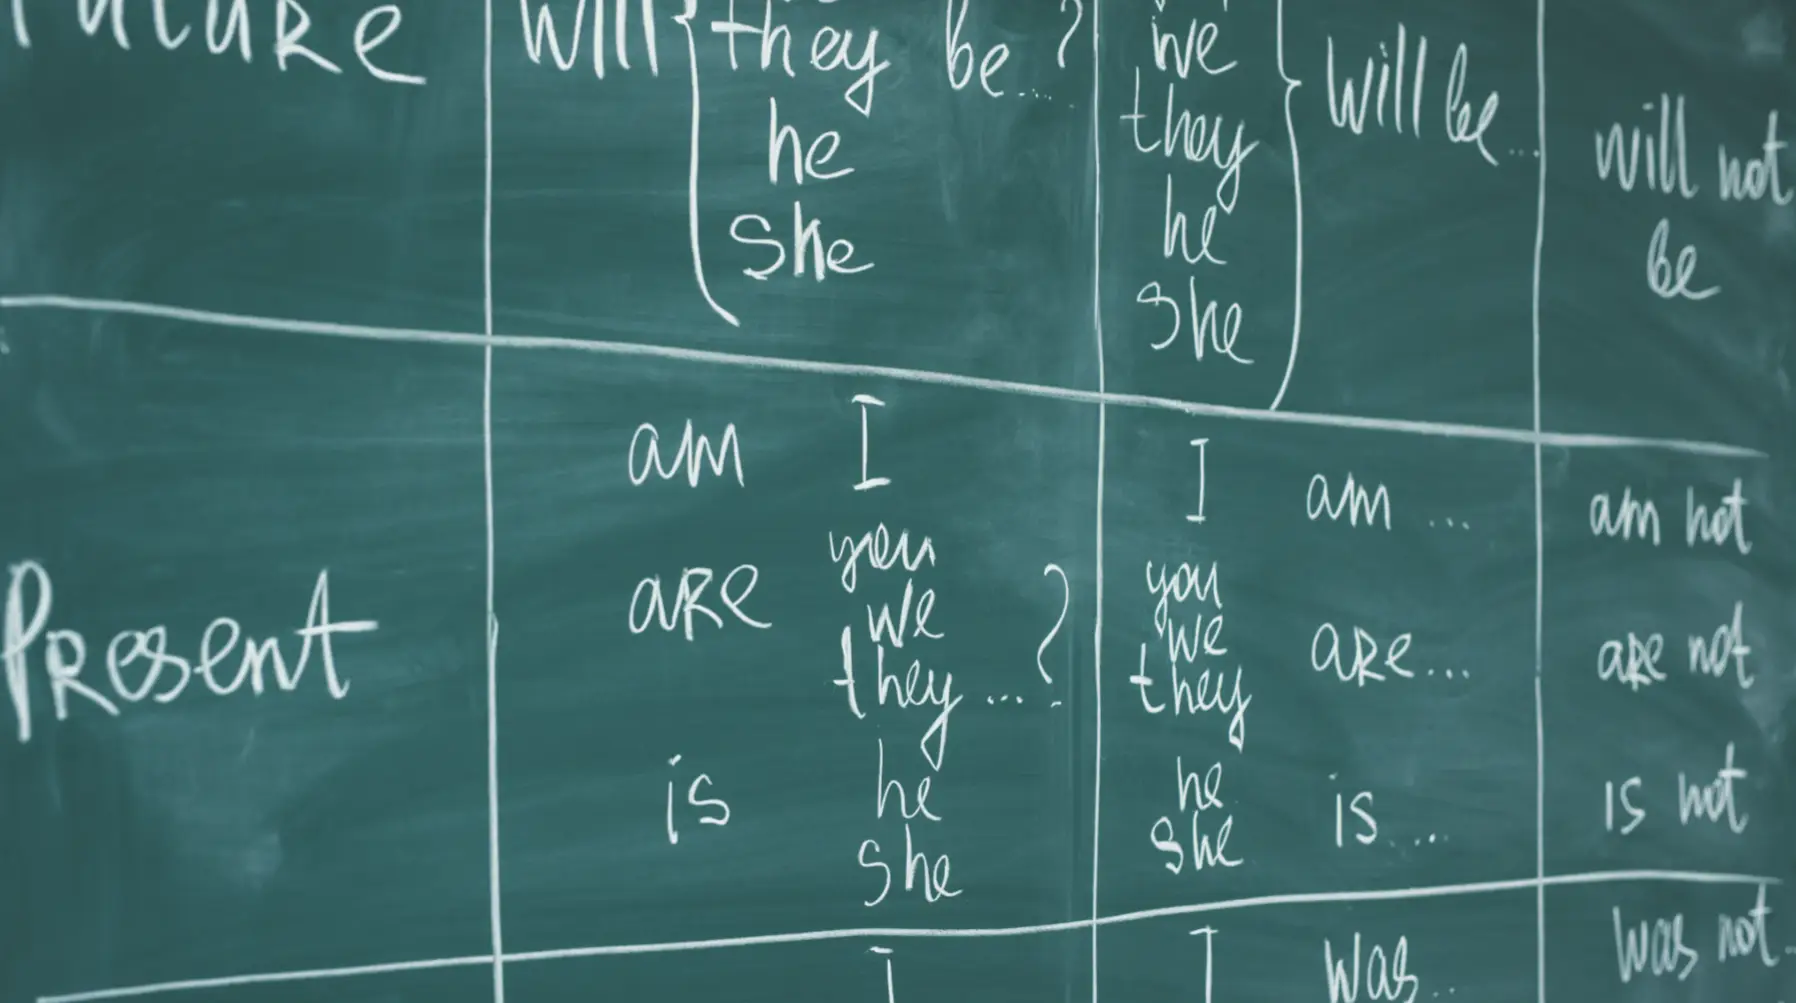 Future
will { they be....?
he
she
we
they
he
she
} will be...
will not
be
Present
am I
you
are we
they...?
he
is she
I am ...
you
we are...
they
he is....
she
am not
are not
is not
I
I was..
was not..